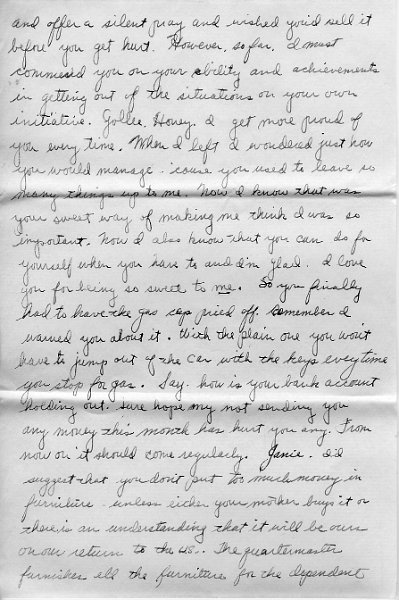 and offer a silent pray and wished you'd sell it
before you get hurt. However, so far, I must
commend you on your ability and achievements
in getting out of the situations on your own
initiative. Gollee, Honey. I get more proud of
you every time. When I left I wondered just how
you would manage - 'cause you used to leave so
many things up to me. Now I know that was
your sweet way of making me think I was so
important. Now I also know that you can do for
yourself when you have to and I'm glad. I love
you for being so sweet to me. So you finally
had to have the gas cap pried off. Remember I
warned you about it. With the plain one you won't
have to jump out of the car with the keys everytime
you stop for gas. Say - how is your bank account
holding out. Sure hope my not sending you
any money this month has hurt you any. From
now on it should come regularly. Janie. I'd
suggest that you don't put too much money in
furniture - unless either your mother buys it or
there is an understanding that it will be ours
on our return to the US.. The quartermaster
furnishes all the furniture for the dependent